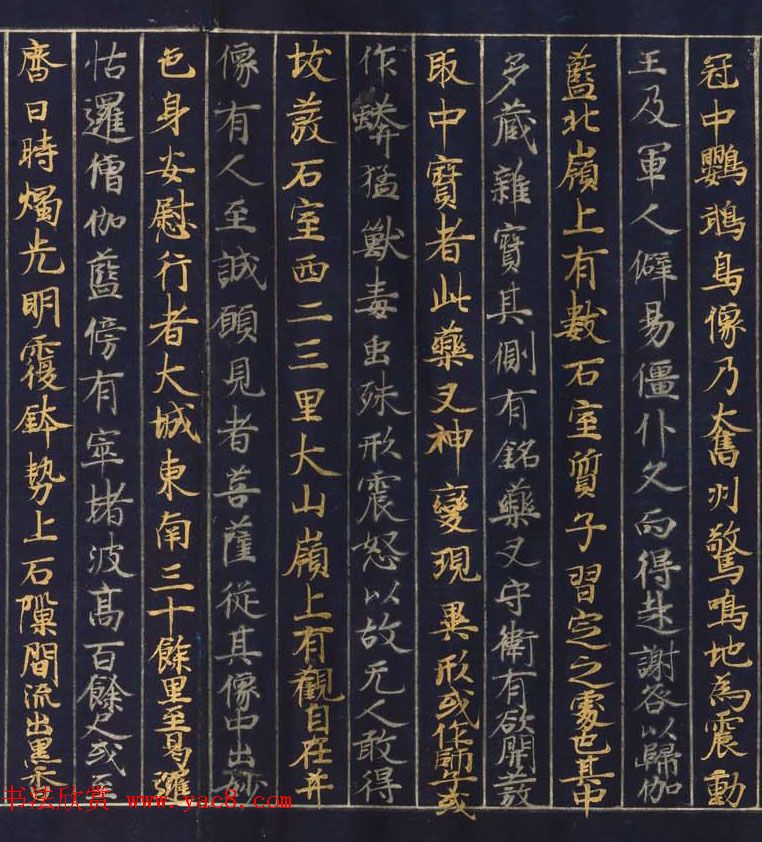 冠中鸚鵡鳥像乃奮羽驚鳴地為震動
王及軍人僻易僵仆久而得起謝咎以歸伽
藍北嶺上有數石室質子習定之處也其中
多藏雜寶其側有銘藥叉守衛有欲開發
取中寶者此藥叉神變現異形或作師子或
作蟒猛獸毒虫殊形震怒以故无人敢得
攻發石室西二三里大山嶺上有觀自在𦬇
像有人至誠願見者菩薩從其像中出妙
色身安慰行者大城東南三十餘里至曷邏
怙邏僧伽藍傍有窣堵波高百餘尺或至
齋日時燭光明覆鉢勢上石隙間流出黑香
书法欣赏 www.yac8.com